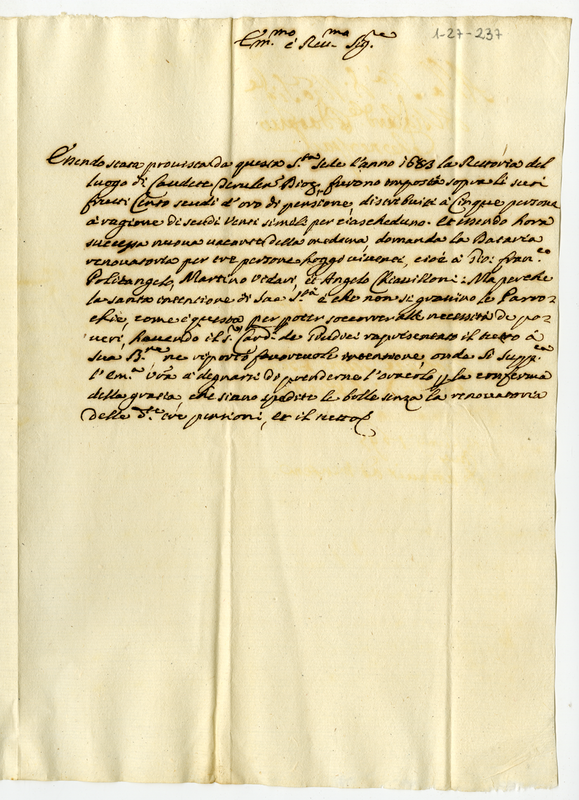 1-27-237
Em.mo e Rev.mo Sig.re
Essendo stata provista da questa S.ta Sede l'anno 1683 la Rettoria del
luogo di Caudete Dertusen Dioc, furono imposti sopra li suoi
frutti Cento scudi d'oro di pensione distribuiti à Cinque persone
à ragione di scudi Venti simili per ciascheduno. Et essendo hora
successa nuova vacante della medema, domanda la Dataria
renovatoria per tre persone hoggi viventi, cioè à Gio: Fran.co
Politangelo, Martino Vedavi, et Angelo Chiavilloni: Ma perche
la santa intenzione di Sua S.tà è che non si gravino le Parro-
chie, come è questa per poter soccorrer alle necessità de po-
veri, havendo il s.r Card. de rapresentato il tutto à
Sua B.ne ne riportò favorevole intenzione, onde si supp.ca
l'Em.a V.ra à degnarsi di prenderne l'oracolo, la conferma
della grazia che siano spedite le bolle senza la renovatoria
delle d.te tre pensioni, et il tutto